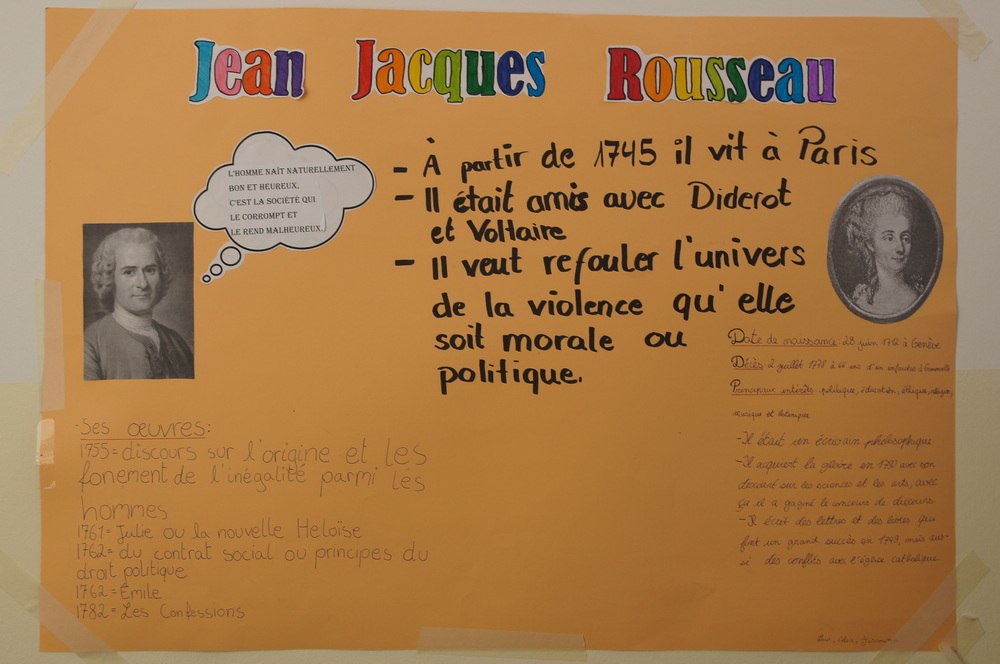 Jean Jacques Rousseau
L'HOMME NAÎT NATURELLEMENT
BON ET HEUREUX,
C'EST LA SOCIÉTÉ QUI
LE CORROMPT ET
LE REND MALHEUREUX.
- À partir de 1745 il vit à Paris
- Il était amis avec Diderot
et Voltaire
- Il veut refouler l'univers
de la violence qu'elle
soit morale ou
politique.
Ses œuvres:
1755= discours sur l'origine et les
fonement de l'inégalité parmi les
hommes
1761= Julie ou la nouvelle Heloïse
1762= du contrat social ou principes du
droit politique
1762= Émile
1782= Les Confessions
Date de naissance: 28 juin 1712 à Genève
Décès: 2 juillet 1778 à 66 ans
Principaux intérêts: politique, éducation, éthique, religion,
musique et botanique
-Il était un écrivain philosophique
-Il acquiert la gloire en 1750 avec son
discours sur les sciences et les arts, avec
ça il a gagné le concours de discours
-Il écrit des lettres et des livres qui
font un grand succès en 1749, mais aus-
si des conflits avec l'église catholique